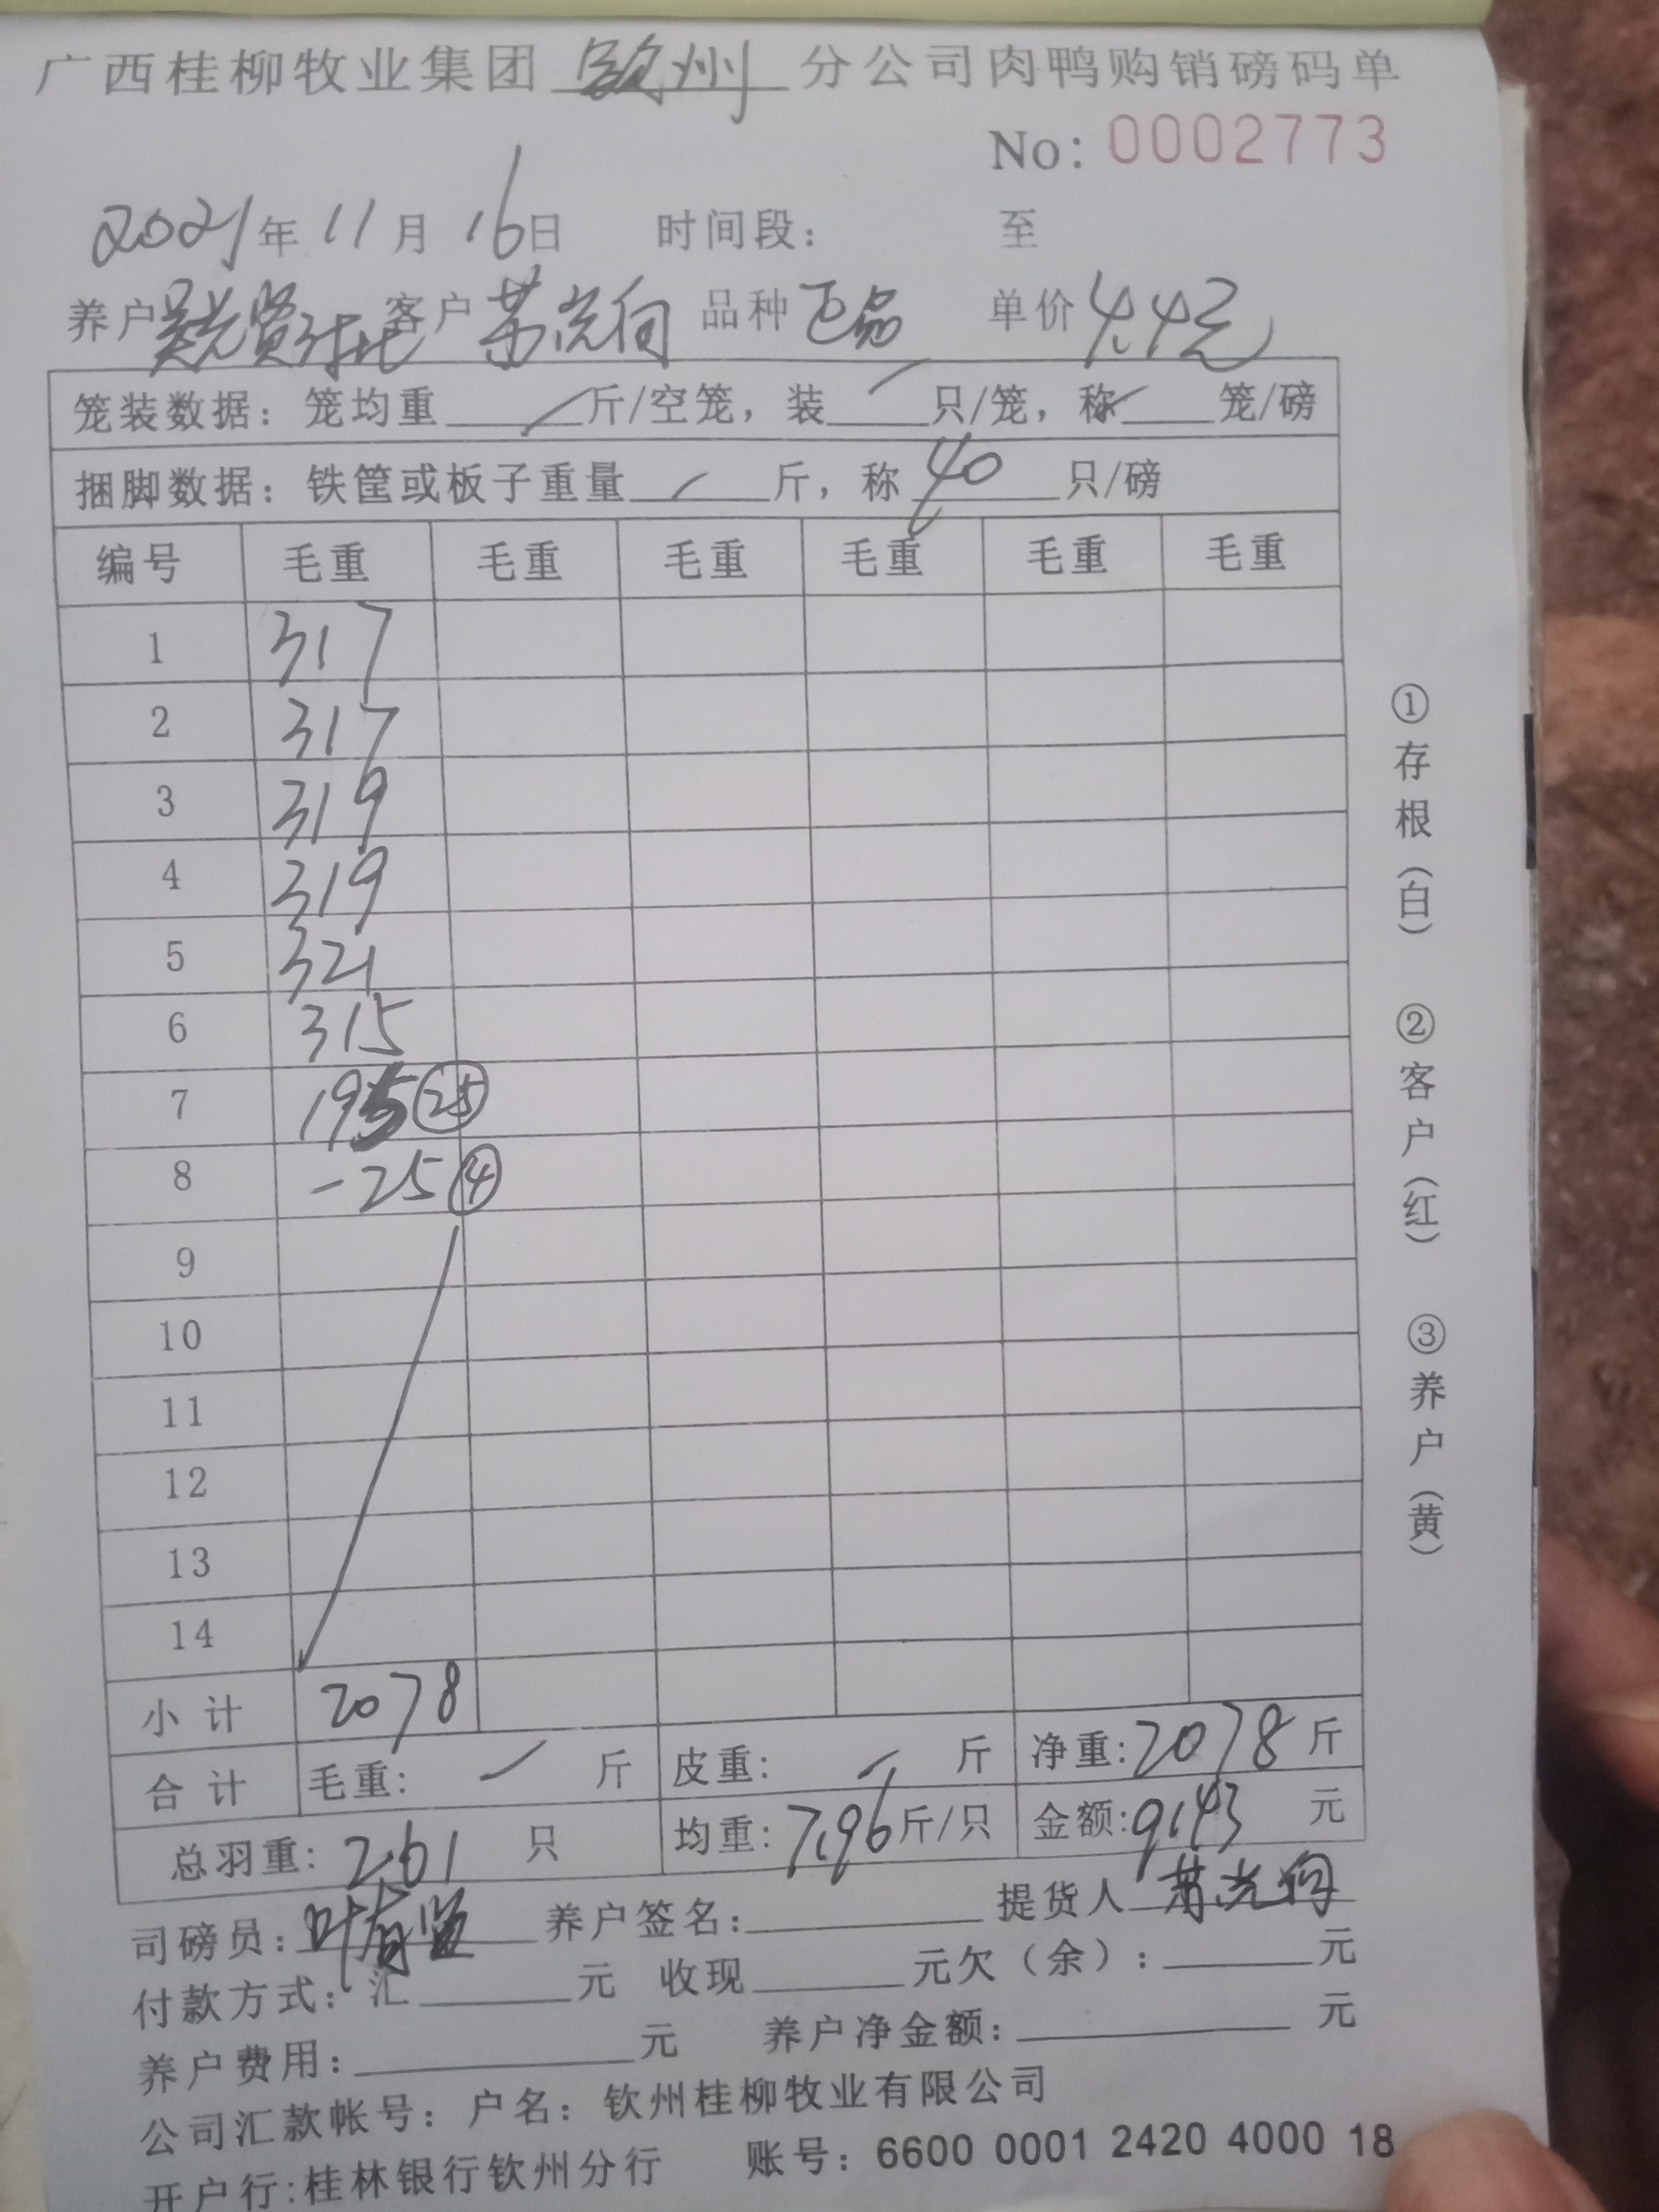 广西桂柳牧业集团 钦州 分公司肉鸭购销磅码单
No: 0002773
2021年 11 月 16日 时间段: 至
养户 客户 苏光向 品种 正品 单价 4.4元
笼装数据: 笼均重 斤/空笼, 装 只/笼, 称 笼/磅
捆脚数据: 铁筐或板子重量 斤, 称 40 只/磅
编号 毛重 毛重 毛重 毛重 毛重 毛重
1 317
2 317
3 319
4 319
5 321
6 315
7 195 25
8 -25 4
9
10
11
12
13
14
小计 2078
合计 毛重: 斤 皮重: 斤 净重: 2078 斤
总羽重: 261 只 均重: 7.96 斤/只 金额: 9143 元
司磅员: 叶有贤 养户签名: 提货人 苏光向
付款方式: 汇 元 收现 元欠(余): 元
养户费用: 元 养户净金额: 元
公司汇款帐号: 户名: 钦州桂柳牧业有限公司
开户行:桂林银行钦州分行 账号: 6600 0001 2420 4000 18
①存根(白) ②客户(红) ③养户(黄)